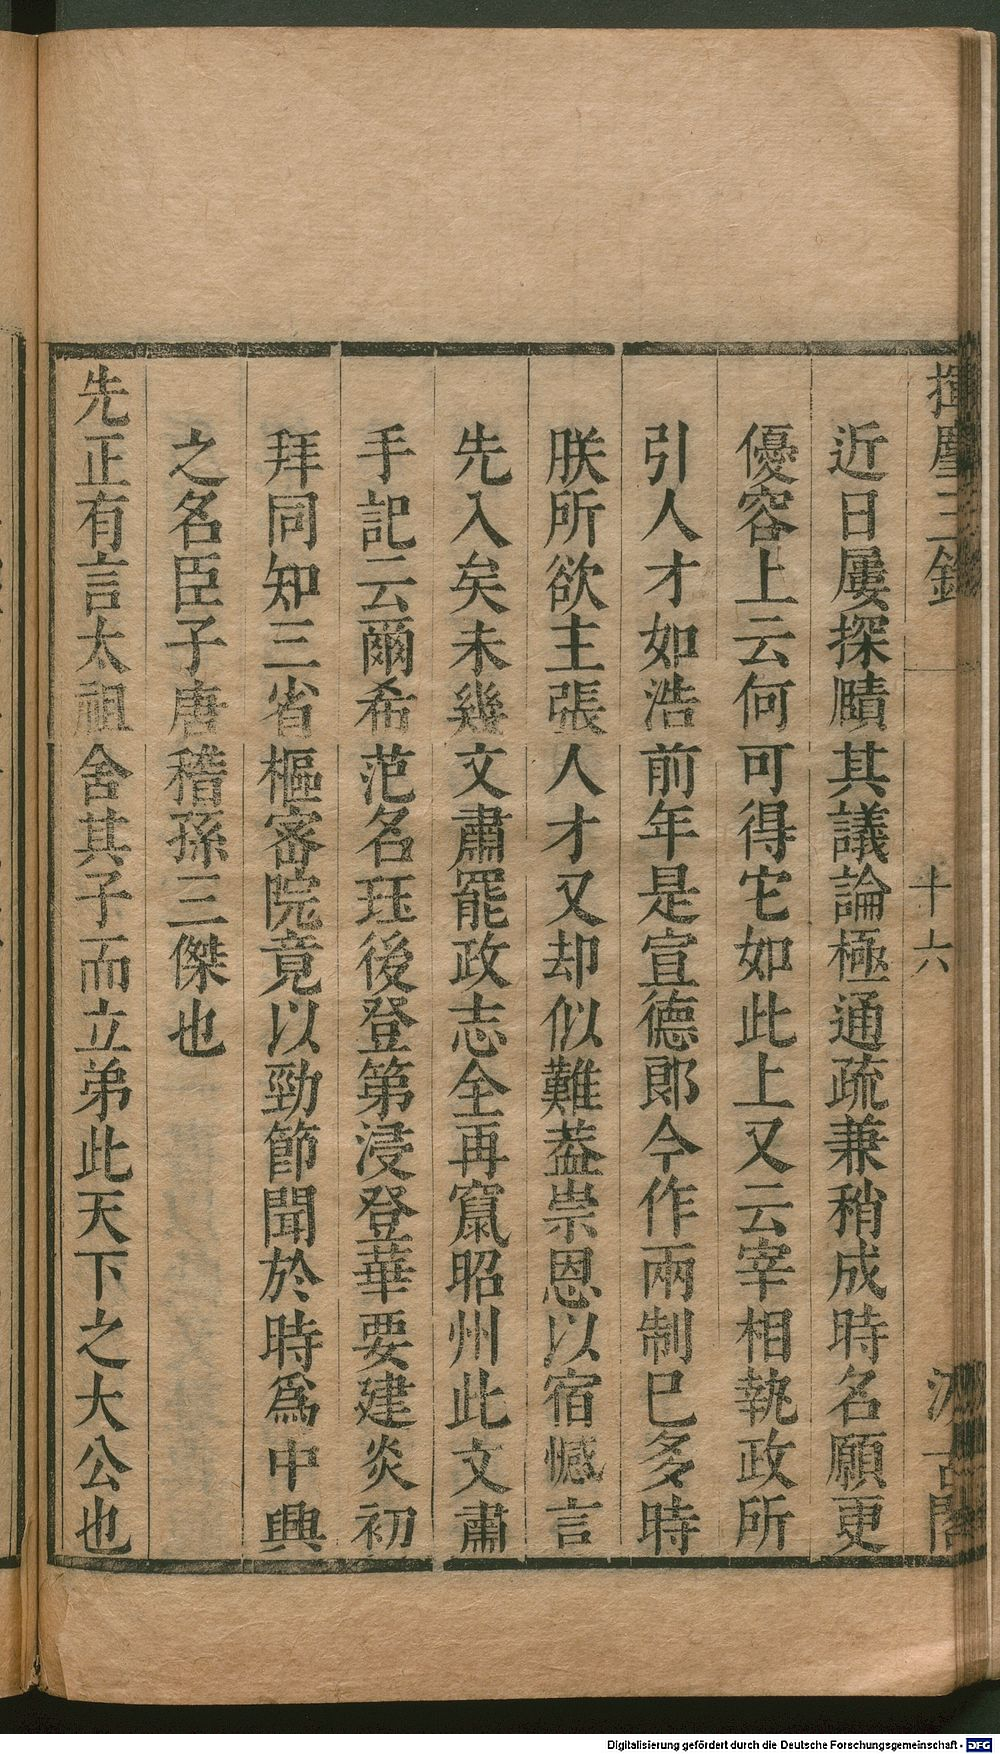 揮麈三錄
十六
汲古閣
近日屢探賾其議論極通疏兼稍成時名願更
優容上云何可得它如此上又云宰相執政所
引人才如浩前年是宣德郎今作兩制已多時
朕所欲主張人才又却似難葢崇恩以宿憾言
先入矣未幾文肅罷政志全再竄昭州此文肅
手記云爾希范名珏後登第浸登華要建炎初
拜同知三省樞密院竟以勁節聞於時爲中興
之名臣子唐稽孫三傑也
先正有言太祖舍其子而立弟此天下之大公也
Digitalisierung gefördert durch die Deutsche Forschungsgemeinschaft - DFG